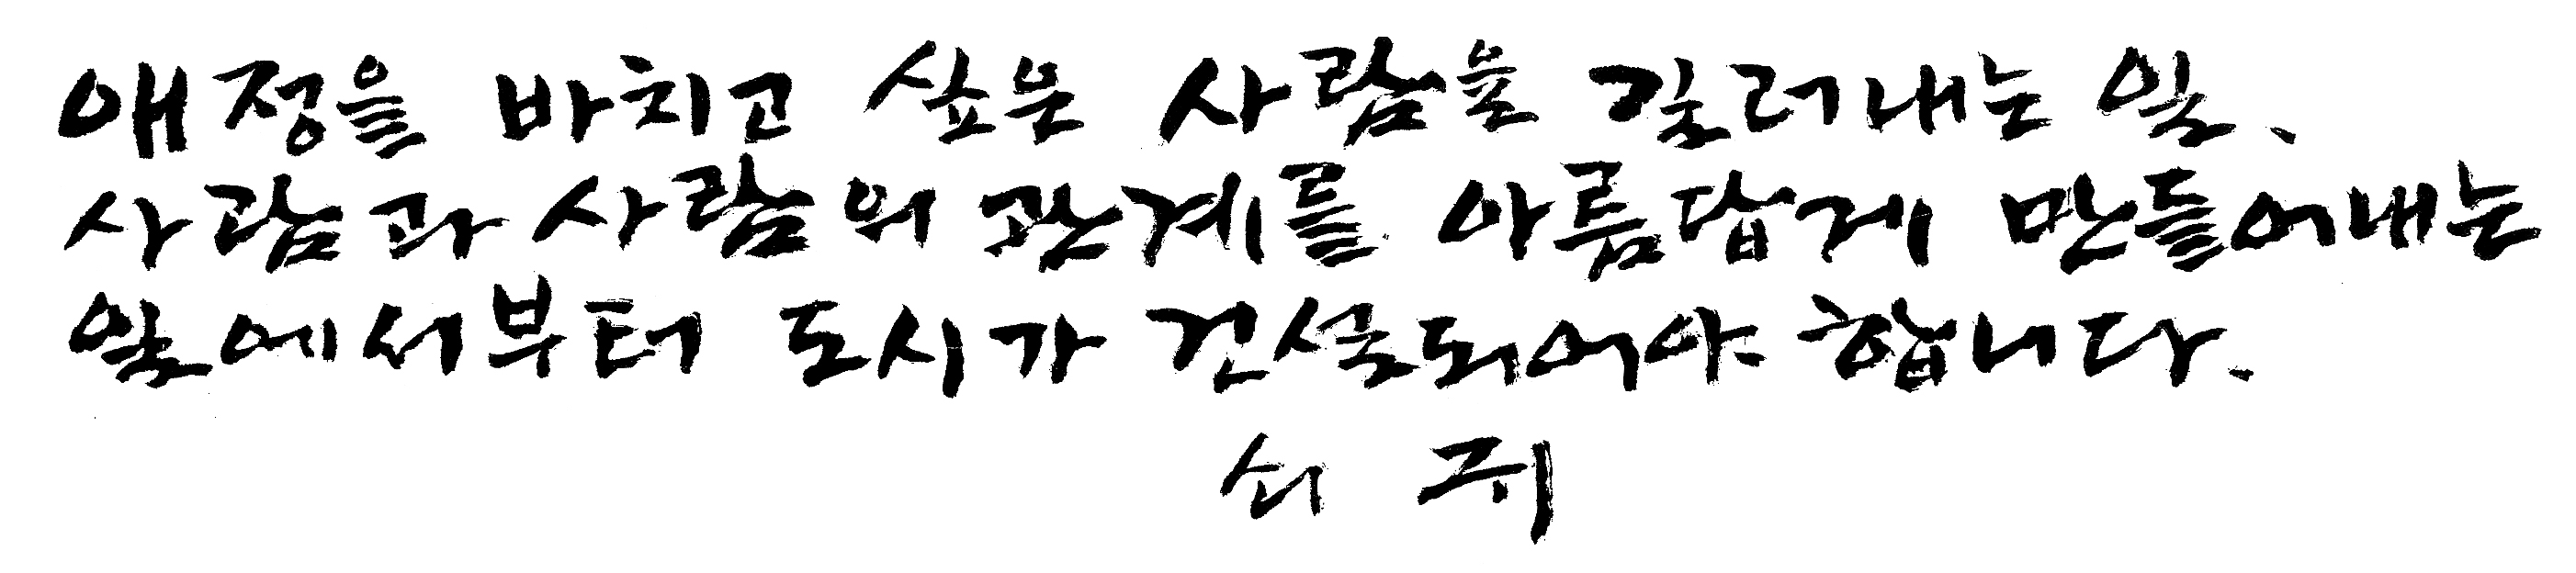 애정을 바치고 싶은 사람을 길러내는 일、
사람과 사람의 관계를 아름답게 만들어내는
일에서부터 도시가 건설되어야 합니다.
쇠귀